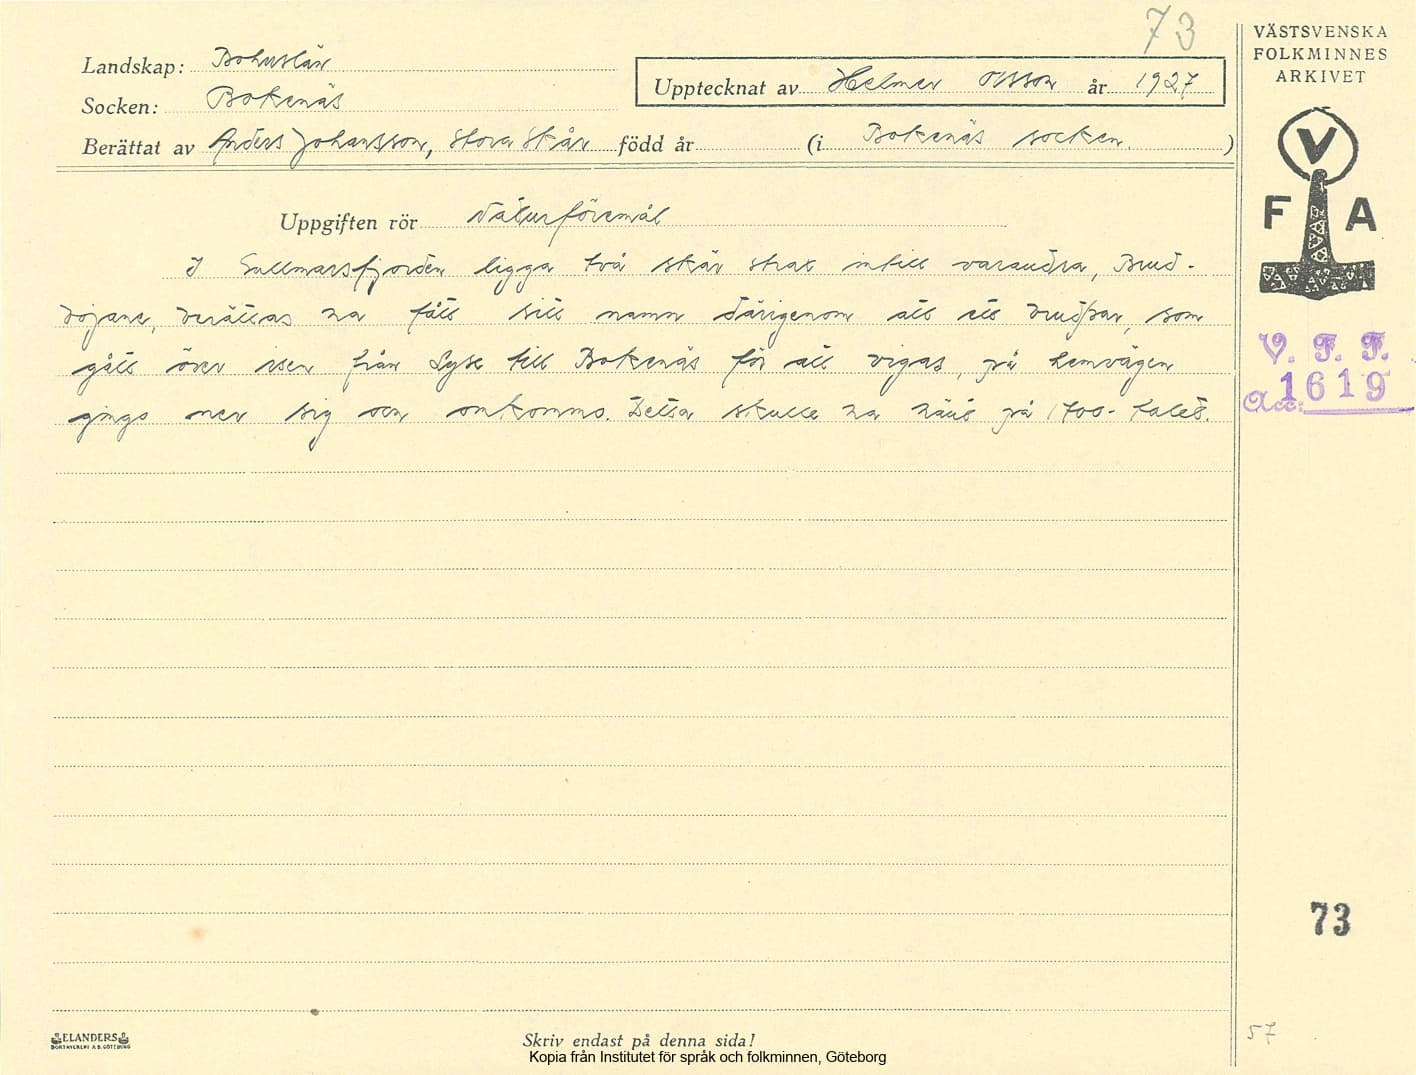 73
VÄSTSVENSKA
FOLKMINNES
ARKIVET
Landskap: Bohuslän
Upptecknat av Helmer Olsson år 1927
Socken: Bokenäs
Berättat av Anders Johansson, Stora Skår född år (i Bokenäs socken )
V
F A
Uppgiften rör Naturföremål
I Gullmarsfjorden ligga två skär strax intill varandra, Brud-
böjane, berättas ha fått sitt namn därigenom att ett brudpar, som
gått över isen från Lyse till Bokenäs för att vigas, på hemvägen
gingo ner sig och omkommo. Detta skulle ha hänt på 1700-talet.
V. F. F.
Acc: 1619
73
57
ELANDERS
BOKTRYCKERI A.B. GÖTEBORG
Skriv endast på denna sida!
Kopia från Institutet för språk och folkminnen, Göteborg